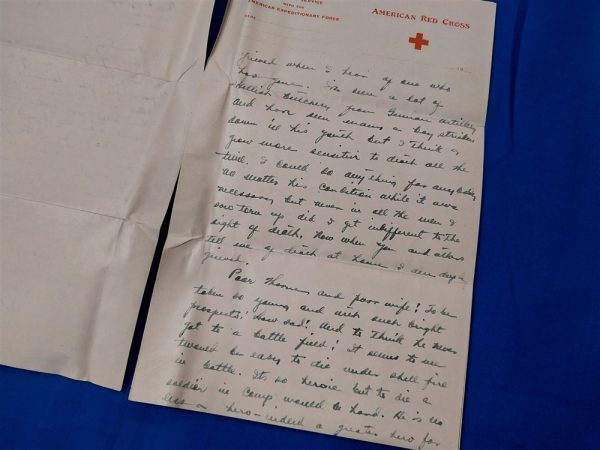 SERVICE
WITH THE
AMERICAN EXPEDITIONARY FORCE
AMERICAN RED CROSS
19
grieved when I hear of one who
has gone. I've seen a lot of
hellish butchery from German artillery
and have seen many a boy stricken
down in his youth but I think I
grow more sensitive to death all the
time. I could do anything for anybody
no matter his condition while it was
necessary but never in all the men I
saw torn up did I get indifferent to the
sight of death. Now when you and others
tell me of death at home I am deeply
grieved.
Poor Thomas and poor wife! To be
taken so young and with such bright
prospects! How sad! And to think he never
got to a battle field! It seems to me
twould be easy to die under shell fire
in battle. Its so heroic but to die a
soldier in camp would be hard. He is no
less a hero - indeed a greater hero for